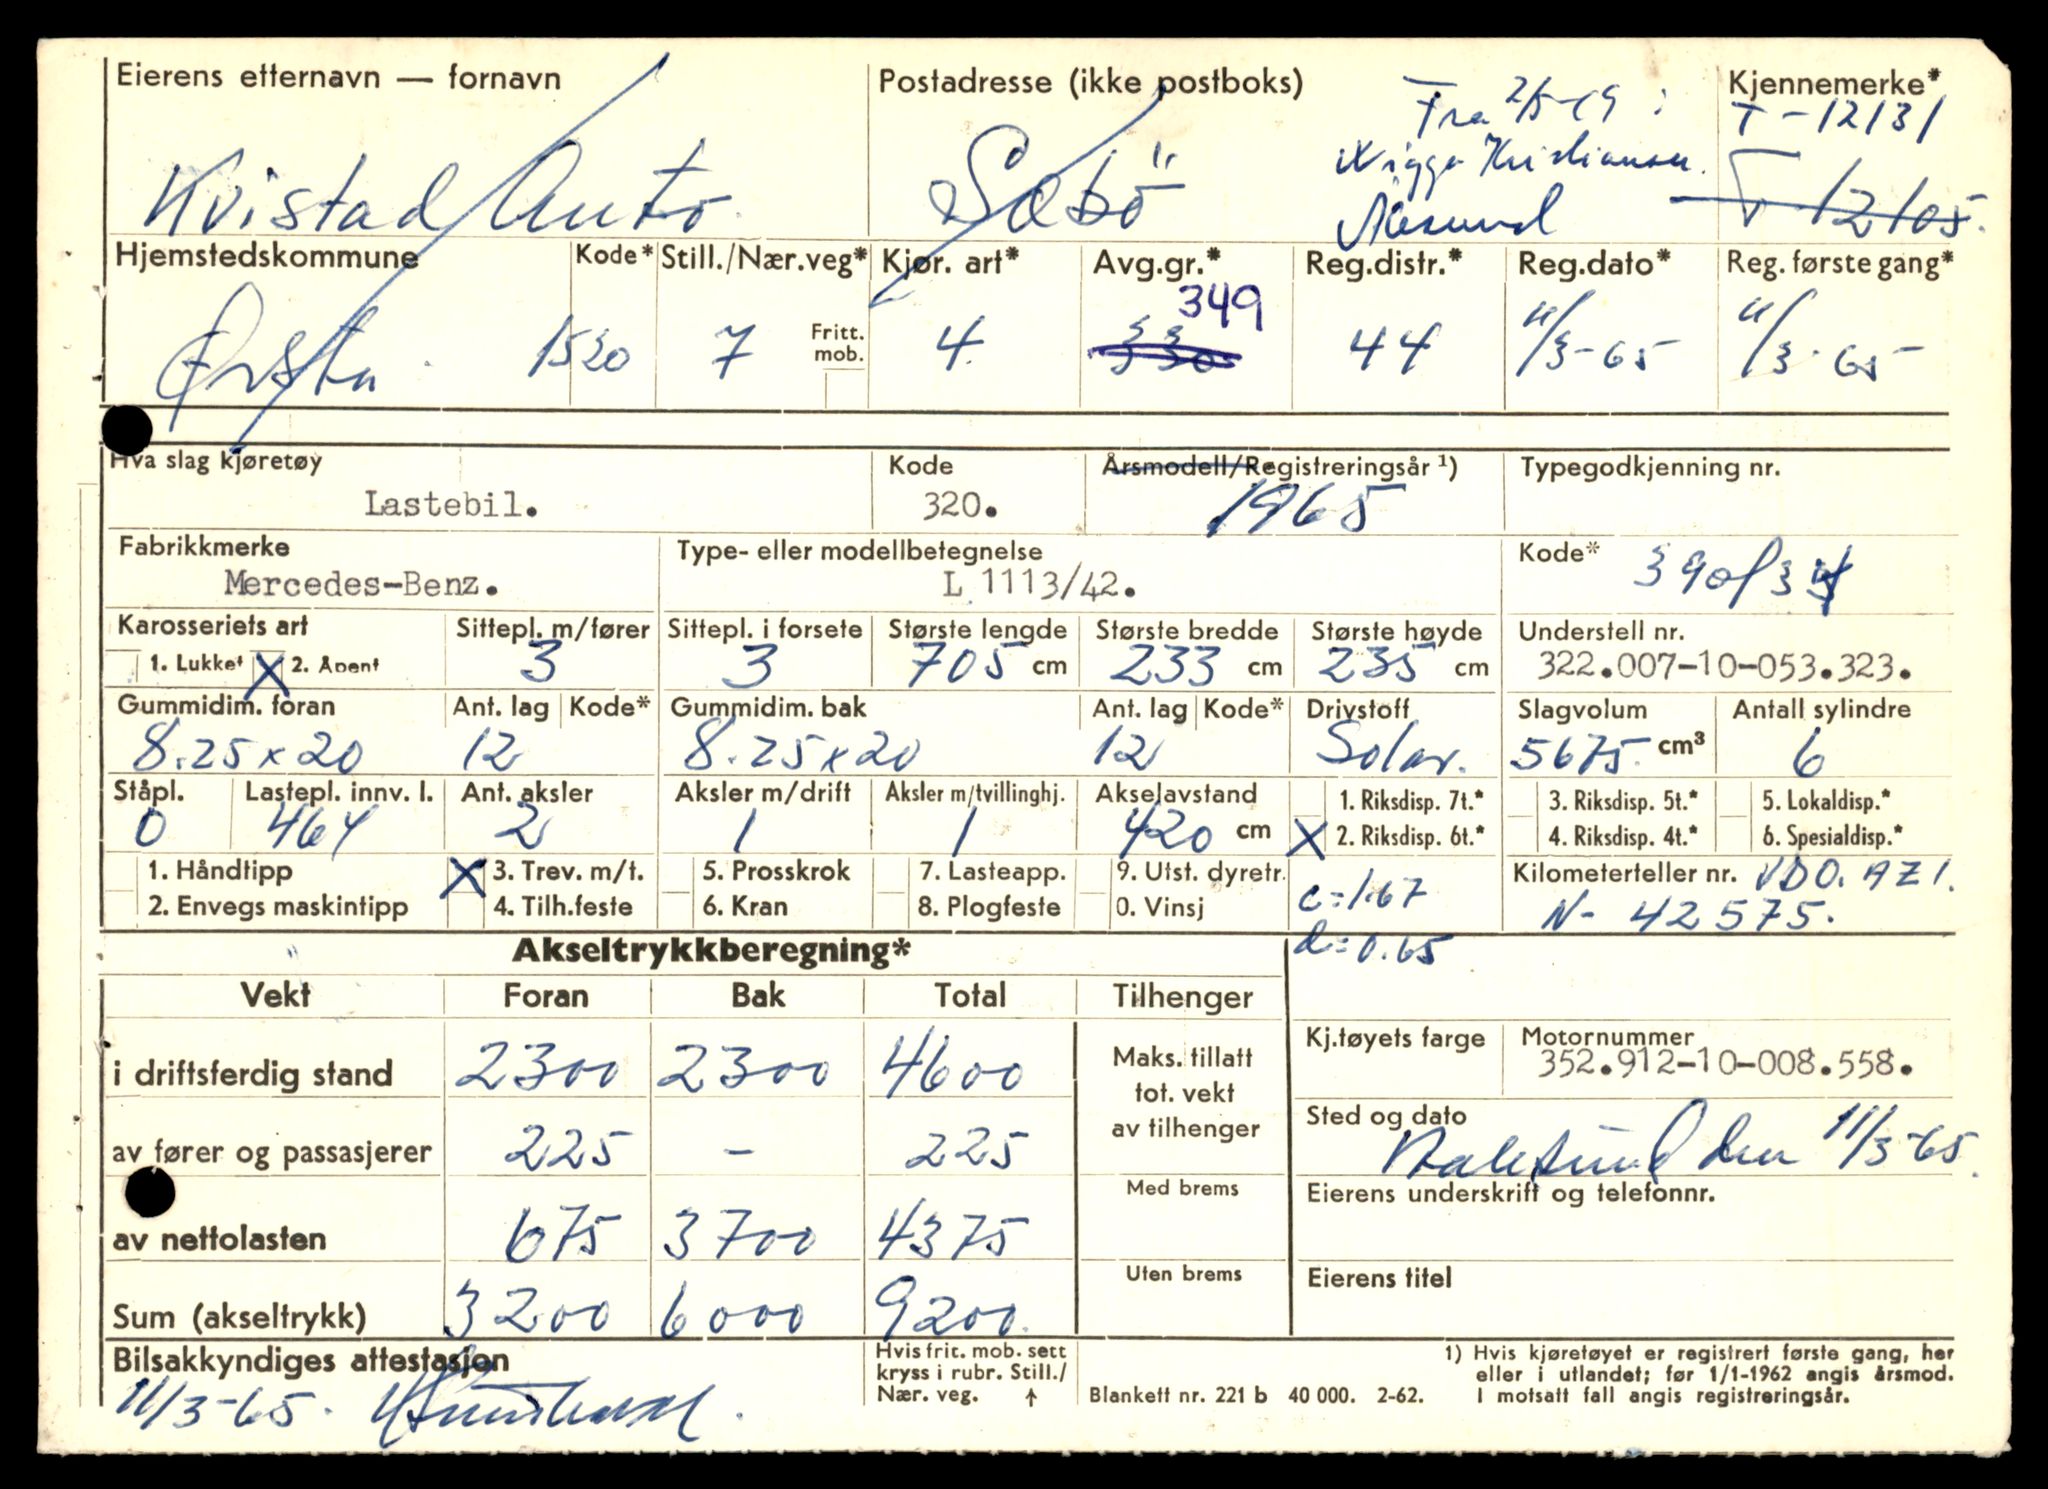 Eierens etternavn — fornavn Postadresse (ikke postboks) Fra 2/5-69 : Kjennemerke*
T-12131
Viggo Kristiansen.
Kvistad Auto. Sæbö Ålesund T 12105.
Hjemstedskommune Kode* Still./Nær.veg* Kjør. art* Avg.gr.* Reg.distr.* Reg.dato* Reg. første gang*
349
Ørsta. 1520 7 Fritt. mob. 4. 330 44 11/3-65 11/3-65
Hva slag kjøretøy Kode Årsmodell/Registreringsår ¹) Typegodkjenning nr.
Lastebil. 320. 1965
Fabrikkmerke Type- eller modellbetegnelse Kode*
Mercedes-Benz. L 1113/42.
Karosseriets art Sittepl. m/fører Sittepl. i forsete Største lengde Største bredde Største høyde Understell nr.
1. Lukket X 2. Åpent 3 3 705 cm 233 cm 235 cm 322.007-10-053.323.
Gummidim. foran Ant. lag Kode* Gummidim. bak Ant. lag Kode* Drivstoff Slagvolum Antall sylindre
8.25x20 12 8.25x20 12 Solar. 5675. cm³ 6
Ståpl. Lastepl. innv. l. Ant. aksler Aksler m/drift Aksler m/tvillinghj. Akselavstand 1. Riksdisp. 7t.* 3. Riksdisp. 5t.* 5. Lokaldisp.*
0 464 2 1 1 420 cm X 2. Riksdisp. 6t.* 4. Riksdisp. 4t.* 6. Spesialdisp.*
1. Håndtipp X 3. Trev. m/t. 5. Prosskrok 7. Lasteapp. 9. Utst. dyretr. c=1.67 Kilometerteller nr. VDO. AZ1.
2. Envegs maskintipp 4. Tilh.feste 6. Kran 8. Plogfeste 0. Vinsj N- 42575.
Akseltrykkberegning* d=0.65
Vekt Foran Bak Total Tilhenger
Kj.tøyets farge Motornummer
i driftsferdig stand 2300 2300 4600 Maks. tillatt tot. vekt av tilhenger 352.912-10-008.558.
Sted og dato
av fører og passasjerer 225 - 225 Aalesund den 11/3-65.
Med brems Eierens underskrift og telefonnr.
av nettolasten 675 3700 4375
Uten brems Eierens titel
Sum (akseltrykk) 3200 6000 9200.
Bilsakkyndiges attestasjon Hvis frit. mob. sett 1) Hvis kjøretøyet er registrert første gang, her
kryss i rubr. Still./ eller i utlandet; før 1/1-1962 angis årsmod.
11/3-65. Nær. veg. ↑ Blankett nr. 221 b 40 000. 2-62. I motsatt fall angis registreringsår.